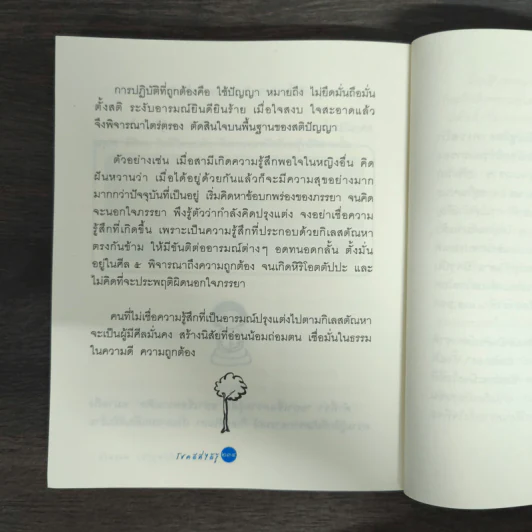 การปฏิบัติที่ถูกต้องคือ ใช้ปัญญา หมายถึง ไม่ยึดมั่นถือมั่น
ตั้งสติ ระงับอารมณ์ยินดียินร้าย เมื่อใจสงบ ใจสะอาดแล้ว
จึงพิจารณาไตร่ตรอง ตัดสินใจบนพื้นฐานของสติปัญญา
ตัวอย่างเช่น เมื่อสามีเกิดความรู้สึกพอใจในหญิงอื่น คิด
ฝันหวานว่า เมื่อได้อยู่ด้วยกันแล้วก็จะมีความสุขอย่างมาก
มากกว่าปัจจุบันที่เป็นอยู่ เริ่มคิดหาข้อบกพร่องของภรรยา จนคิด
จะนอกใจภรรยา พึงรู้ตัวว่ากำลังคิดปรุงแต่ง จงอย่าเชื่อความ
รู้สึกที่เกิดขึ้น เพราะเป็นความรู้สึกที่ประกอบด้วยกิเลสตัณหา
ตรงกันข้าม ให้มีขันติต่ออารมณ์ต่างๆ อดทนอดกลั้น ตั้งมั่น
อยู่ในศีล ๕ พิจารณาถึงความถูกต้อง จนเกิดหิริโอตตัปปะ และ
ไม่คิดที่จะประพฤติผิดนอกใจภรรยา
คนที่ไม่เชื่อความรู้สึกที่เป็นอารมณ์ปรุงแต่งไปตามกิเลสตัณหา
จะเป็นผู้มีศีลมั่นคง สร้างนิสัยที่อ่อนน้อมถ่อมตน เชื่อมั่นในธรรม
ในความดี ความถูกต้อง